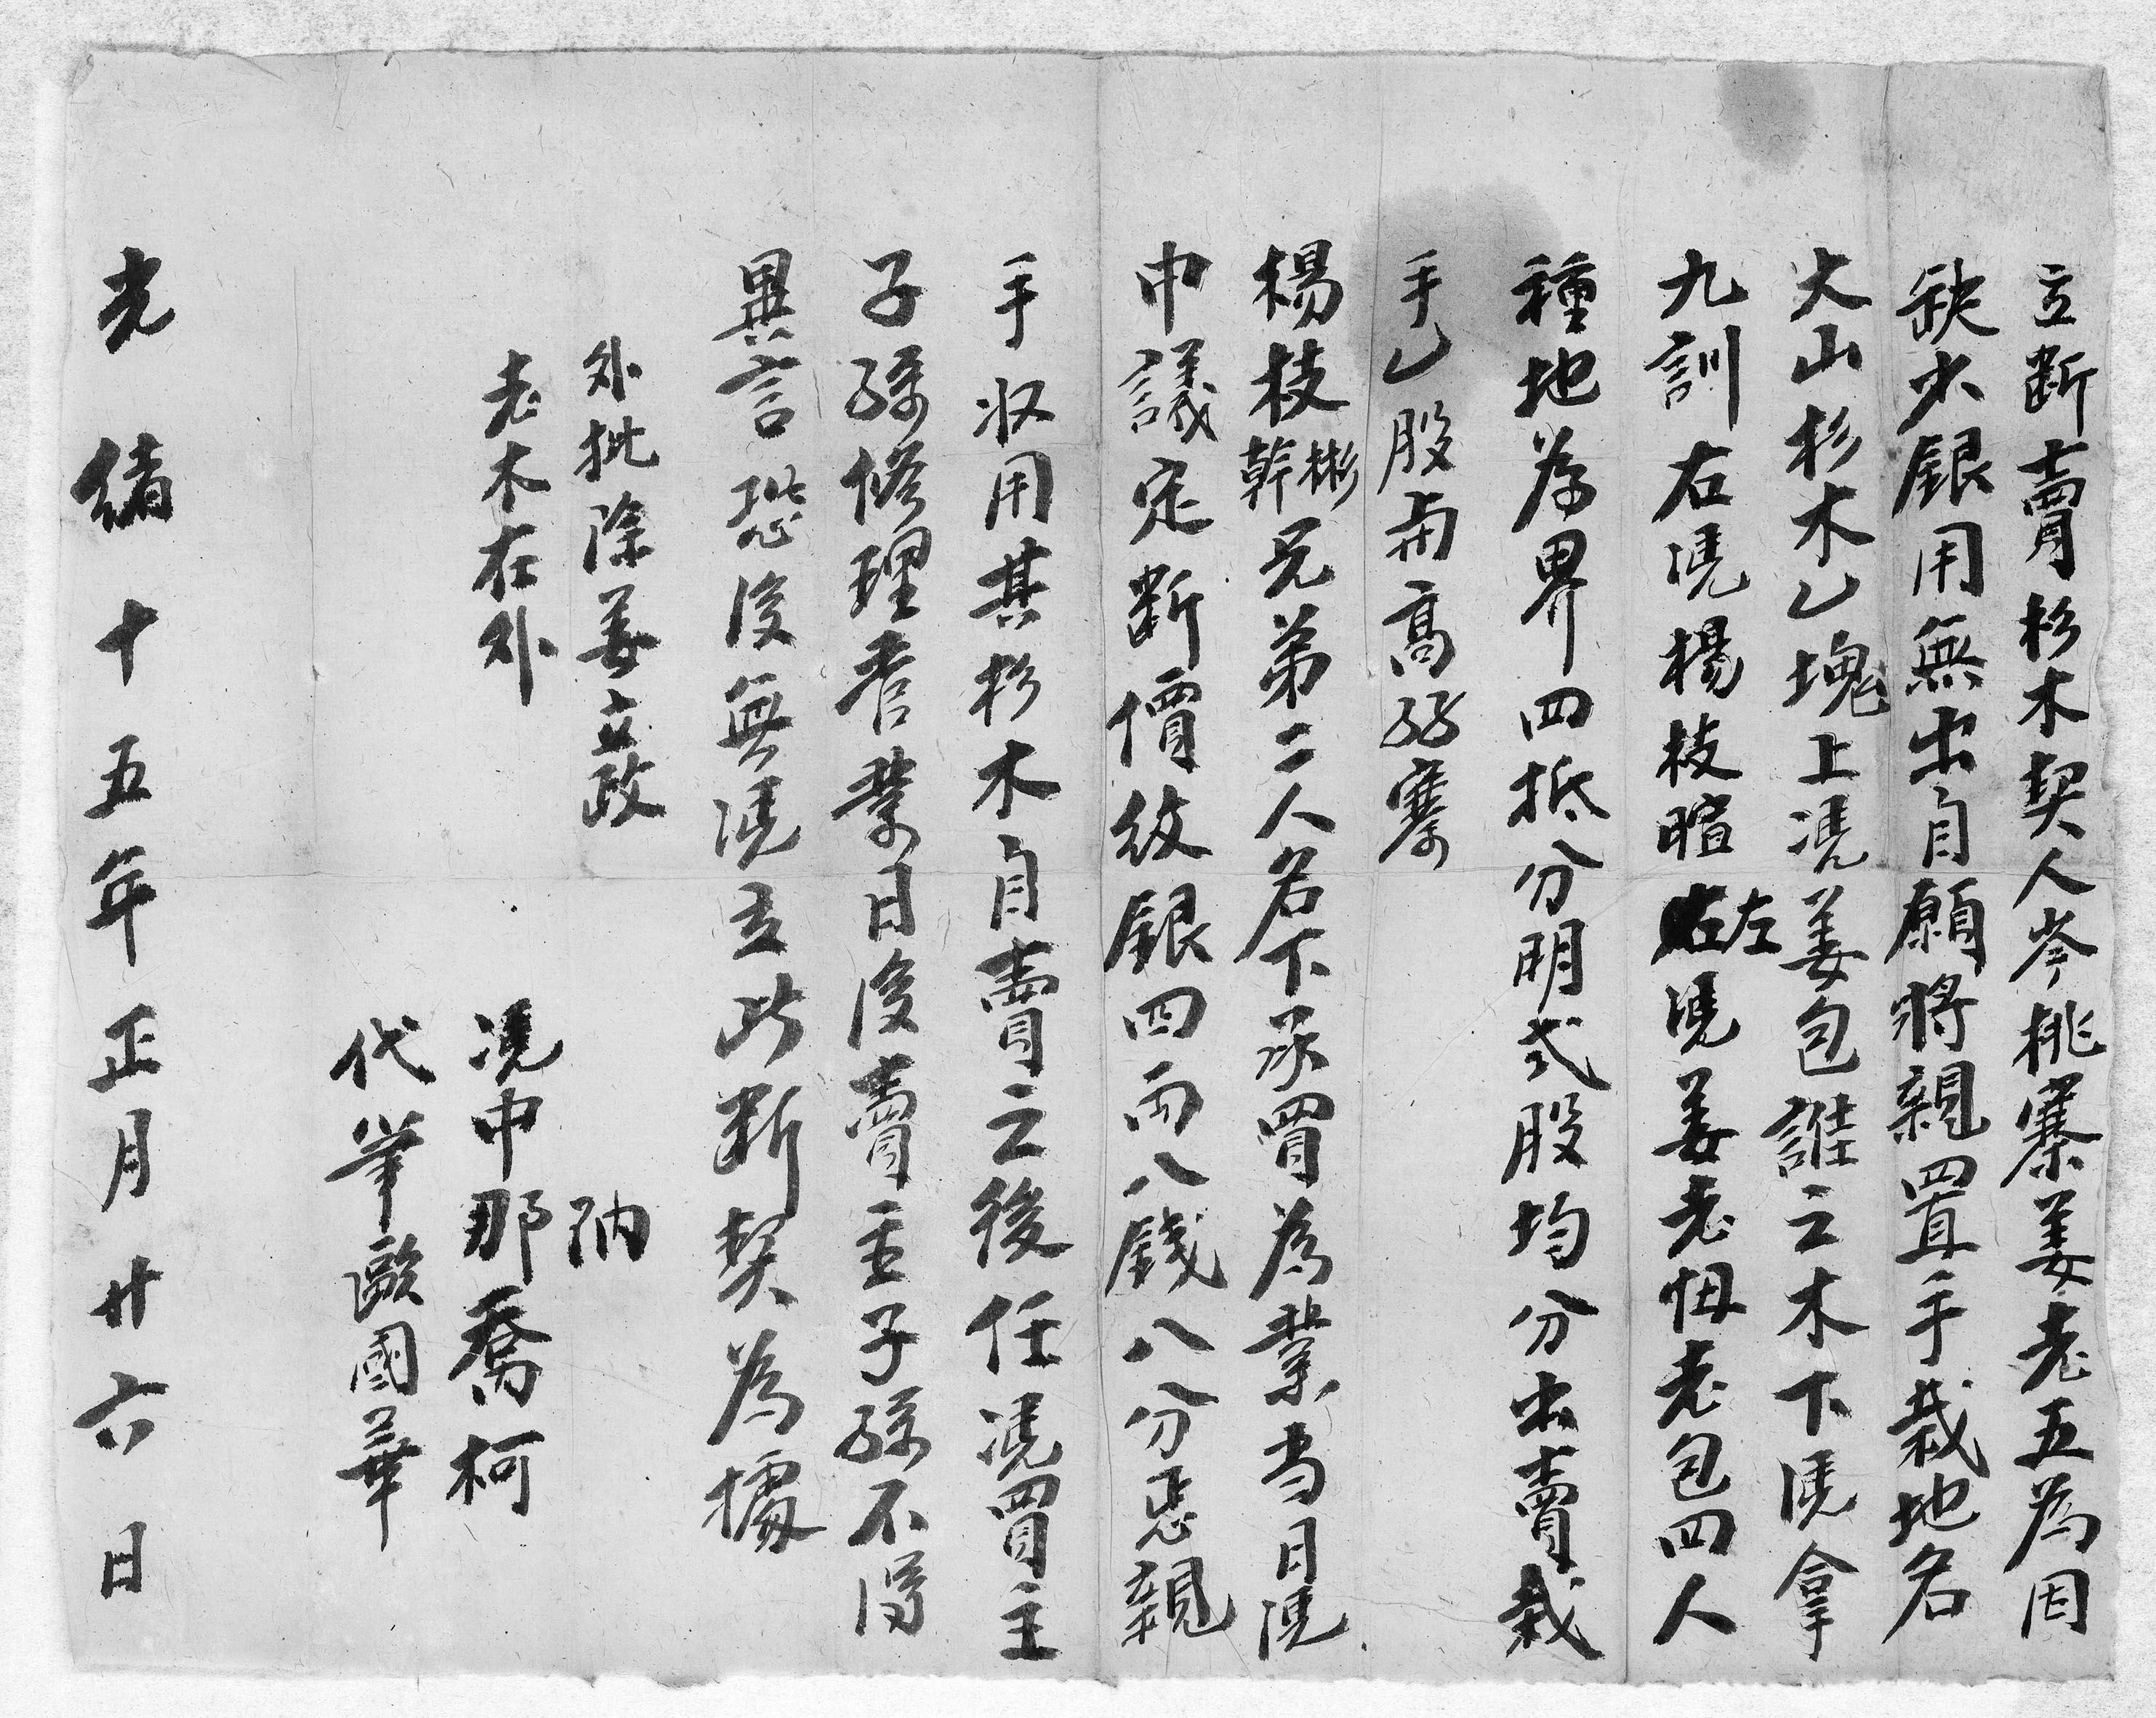 立断賣杉木契人岑桃寨姜老五為因
缺少銀用無出自願將親置手栽地名
大山杉木乙塊上凴姜包誰之木下凴拿
九訓右凴楊枝暄左右凴姜老忸老包四人
種地為界四抵分明弍股均分出賣栽
手乙股與高孖寨
楊枝彬幹兄弟二人名下承買為業当日凴
中議定断價紋銀四両八錢八分悉親
手收用其杉木自賣之後任凴買主
子孫修理管業日後賣主子孫不得
異言恐後無凴立此断契為據
外批除姜立政
老木在外
訥
凴中那喬柯
代筆歐國華
光緒十五年正月廿六日